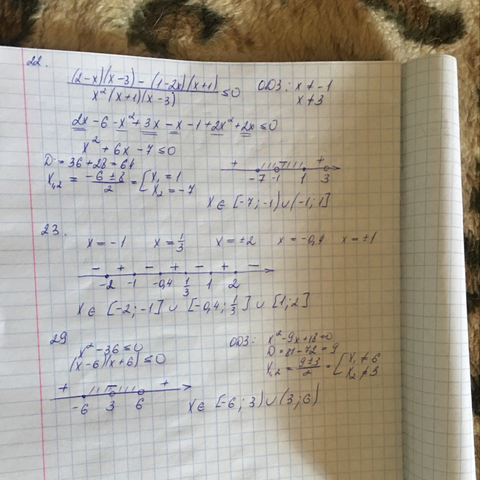 22.
(2-x)(x-3) - (1-2x)(x+1) / x²(x+1)(x-3) ≤0 ОДЗ: x ≠ -1
x ≠ 3
2x-6-x²+3x-x-1+2x²+2x ≤0
x² + 6x -7 ≤0
D = 36+28=64
x₁,₂ = (-6 ± 8)/2 = [x₁ = 1
x₂ = -7
+ - - +
-7 -1 1 3
x ∈ [-7; -1) ∪ (-1; 1]
23.
x = -1 x = 1/3 x = ±2 x = -0,4 x = ±1
- + - + - + -
-2 -1 -0,4 1/3 1 2
x ∈ [-2; -1] ∪ [-0,4; 1/3] ∪ [1; 2]
29
x² - 36 ≤0 ОДЗ: x² - 9x + 18 ≠ 0
(x-6)(x+6) ≤0 D = 81 - 72 = 9
x₁,₂ = (9±3)/2 = [x₁ ≠ 6
x₂ ≠ 3
+ - +
-6 3 6
x ∈ [-6; 3) ∪ (3; 6)